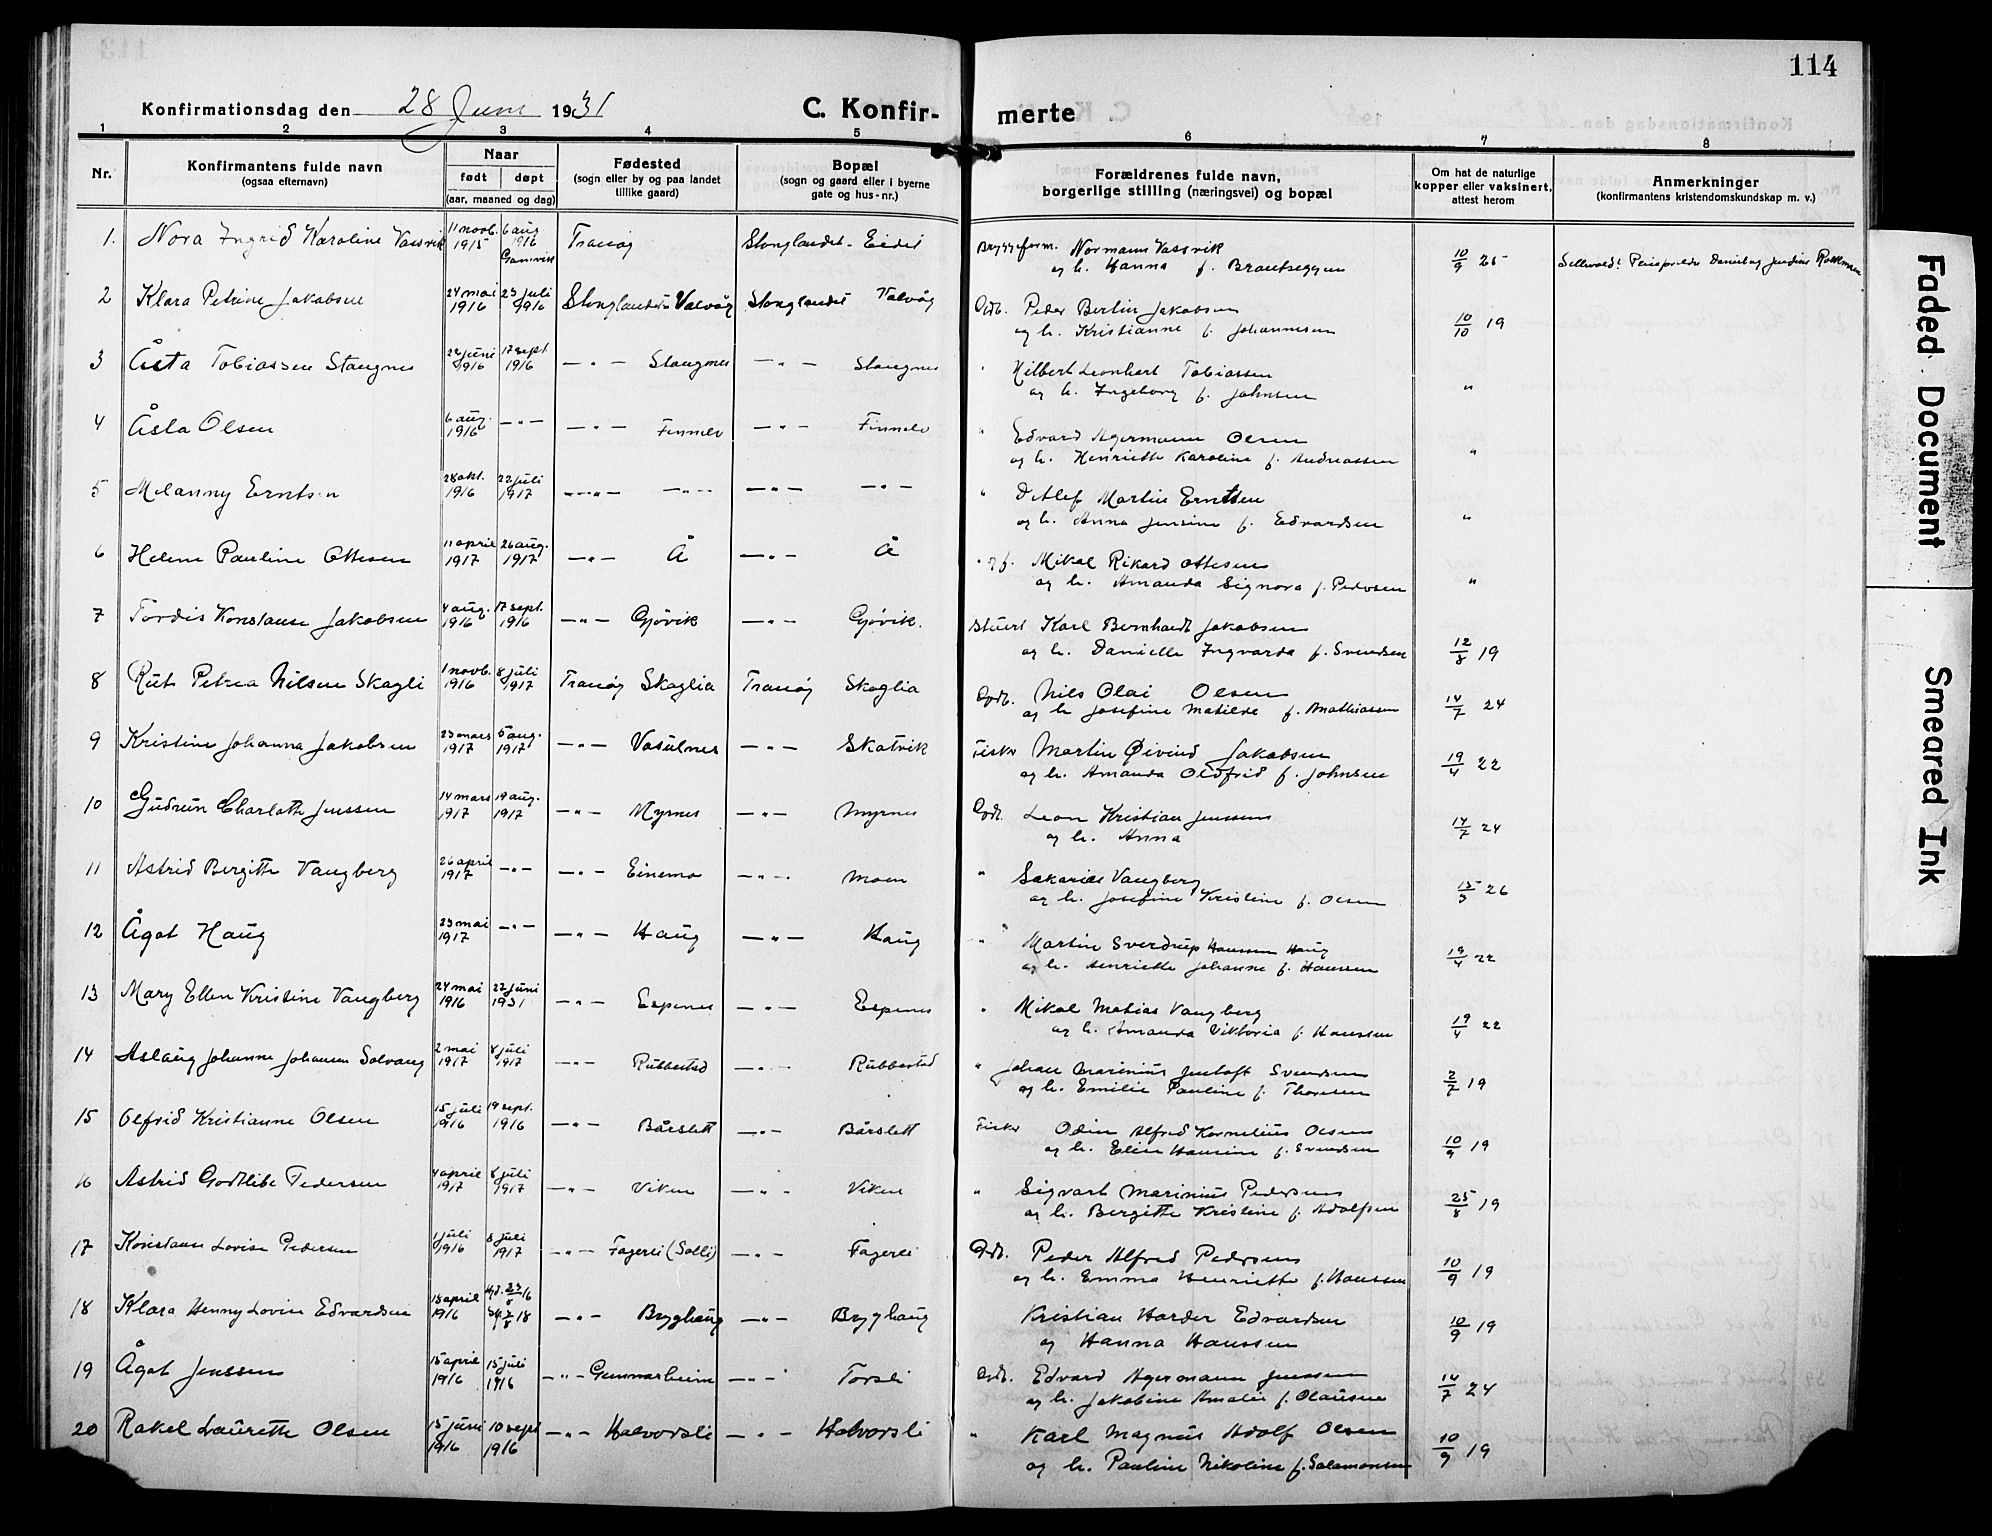 114
Konfirmationsdag den 28 Juni 1931 C. Konfirmerte
1 2 3 4 5 6 7 8
Nr. Konfirmantens fulde navn (ogsaa efternavn) Naar født døpt (aar, maaned og dag) Fødested (sogn eller by og paa landet tillike gaard) Bopæl (sogn og gaard eller i byerne gate og hus-nr.) Forældrenes fulde navn, borgerlige stilling (næringsvei) og bopæl Om hat de naturlige kopper eller vaksinert, attest herom Anmerkninger (konfirmantens kristendomskundskap m. v.)
1. Nora Ingrid Karoline Vassvik 11 novb. 1915 6 aug 1916 Gamvik Tranøy Stonglandet - Eidet Normann Vassvik 10/9 25
og h. Hanna f. Brantseggen
2 Klara Petrine Jakobsen 24 mai 1916 23 juli 1916 Stonglandet Valvåg Stonglandet Valvåg Gdb. Peder Berlin Jakobsen 10/10 19
og h. Kristianne f. Johannesen
3 Åsta Tobiassen Stangnes 22 juni 1916 17 sept. 1916 — " — Stangnes — " — Stangnes " Hilbert Leonhart Tobiassen "
og h. Ingeborg f. Johnsen
4 Åsla Olsen 6 aug. 1916 — " — — " — Finnelv — " — Finnelv " Edvard Agermann Olsen "
og h. Henriette Karoline f. Andreassen
5 Melanny Erntsen 28 okt. 1916 22 juli 1917 — " — — " — — " — — " — " Detlef Martin Erntsen "
og h. Anna Jensine f. Edvardsen
6 Helene Pauline Ottesen 11 april 1917 26 aug. 1917 — " — Å — " — Å Mikal Rikard Ottesen "
og h. Amanda Signora f. Pedersen
7 Tordis Konstanse Jakobsen 4 aug. 1916 17 sept. 1916 — " — Gjøvik — " — Gjøvik. Stuert Karl Bernhardt Jakobsen 12/8 19
og h. Danielle Ingvarda f. Svendsen
8 Rut Petrea Nilsen Skagli 1 novb. 1916 8 juli 1917 Tranøy Skaglia Tranøy Skaglia Gdb. Nils Olai Olsen 14/7 24
og h Josefine Matilde f. Mathiassen
9 Kristine Johanna Jakobsen 23 mars 1917 5 aug. 1917 — " — Vasulnes — " — Skatvik Fisker Martin Øivind Jakobsen 19/4 22
og h. Amanda Oldfrid f. Johnsen
10 Gudrun Charlotte Jenssen 14 mars 1917 19 aug. 1917 — " — Myrnes — " — Myrnes Gdb. Leon Kristian Jenssen 14/7 24
og h. Anna
11 Astrid Bergitte Vangberg 26 april 1917 — " — — " — Einemo — " — Moen " Sakarias Vangberg 26
og h. Josefine Kristine f. Olsen
12 Ågot Haug 23 mai 1917 — " — — " — Haug — " — Haug " Martin Sverdrup Hanssen Haug 19/4 22
og h. Henriette Johanne f. Hanssen
13 Mary Ellen Kristine Vangberg 24 mai 1916 27 juni 1931 — " — Espenes — " — Espenes " Mikal Matias Vangberg 19/4 22
og h. Amanda Viktoria f. Hanssen
14 Aslaug Johanne Johansen Solvang 2 mai 1917 8 juli 1917 — " — Rubbestad — " — Rubbestad " Johan Marinius Jentoft Svendsen 2/7 19
og h. Emilie Pauline f. Thoresen
15 Olfrid Kristianne Olsen 15 juli 1916 19 sept. 1916 — " — Bårslett — " — Bårslett Fisker Odin Alfred Kornelius Olsen 10/9 19
og h. Elise Hansine f. Svendsen
16 Astrid Godtlibe Pedersen 4 april 1917 8 juli 1917 — " — Viken — " — Viken " Sigvart Marinius Pedersen 25/8 19
og h. Bergitte Kristine f. Adolfsen
17 Konstanse Lovise Pedersen 1 juli 1916 8 juli 1917 — " — Fagerli (Solli) — " — Fagerli Gdb. Peder Alfred Pedersen 10/9 19
og h. Emma Henriette f. Hanssen
18 Klara Henny Lovise Edvardsen 18 april 1916 — " — Bryghaug — " — Bryghaug Kristian Harder Edvardsen 10/9 19
og Hanna Hanssen
19 Ågot Jenssen 15 april 1916 15 juli 1916 — " — Gunnarheim — " — Torsli Gdb. Edvard Agermann Jenssen 14/7 24
og h. Jakobine Amalie f. Olausen
20 Rakel Laurette Olsen 15 juni 1916 10 sept 1916 — " — Halvorsli — " — Halvorsli " Karl Magnus Adolf Olsen 10/9 19
og h. Pauline Nikoline f. Salamonsen
Faded Document
Smeared Ink